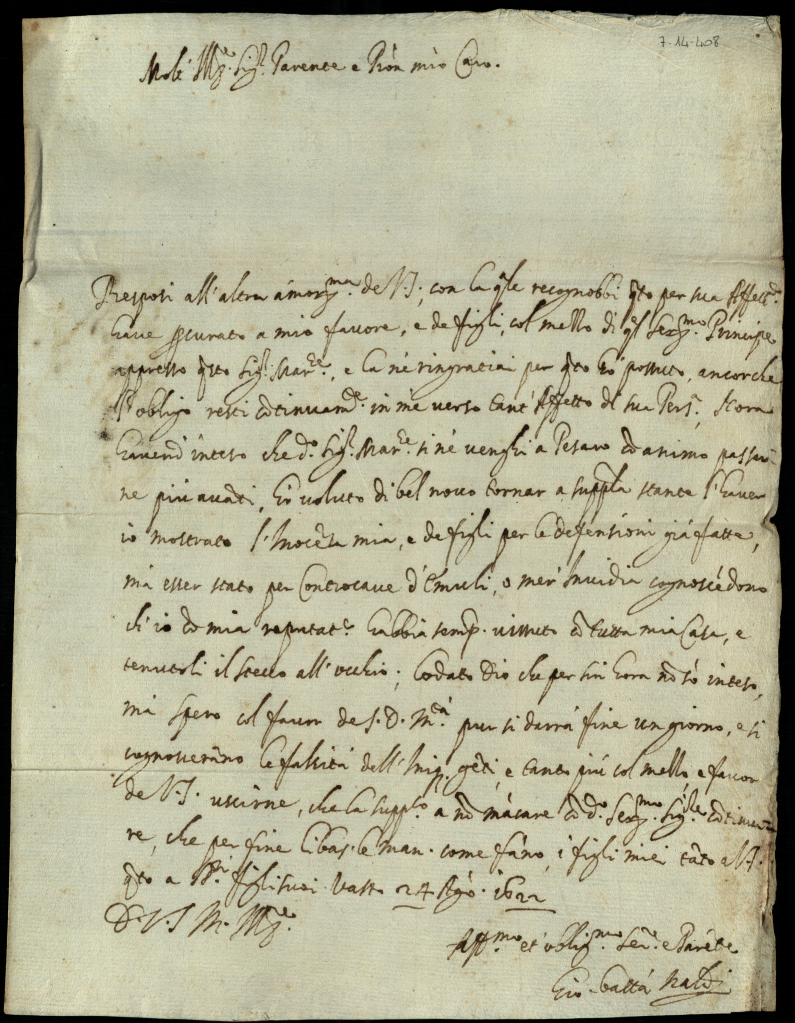 7-14-408
Molt' Mg.re Sig.r Parente e Pròn mio Caro.
Resposi all'altra amorg.ma de V.S., con la q.le recognobbi q.to per sua Affett.
have pcurato a mio favore, e de figli, col mezzo di q.l Ser.mo Principe
appresso q.sto Sig.r Mar.se, e la ne ringratiai per q.to hò possuto, ancorche
l'obligo resti cõtinuam.te in me verso tant' Affetto di sua Pers.a, Hora
havend' inteso che d.o Sig.r Mar.se si nè venghi a Pesaro cõ animo passar
ne più avãti, Hò voluto di bel novo tornar a suppl.la stante l'haver
io mostrato l'Inocẽza mia, e de figli per le defensioni già fatte,
mà esser stato per Controcave d'Emuli, o mer' Invidia cognoscẽdono
ch'io cõ mia reputat.e habbia semp. vissuto cõ tutta mia Casa, e
tenutoli il stecco all'occhio; Lodato Dio che per sin hora nõ sò inteso,
mà spero col favor de S.D.M.tà pur si darrà fine un giorno, e si
cognoscerãno le falsità dell' Iniq. gẽti, e tanto più col mezzo e favor
de V.S. uscirne, che la suppl.co a nõ mãcare cõ d.o Ser.mo Sig.re cõtinua
re, che per fine li bas. le man. come fãno i figli miei tãto a V.S.
q.to a SS.ri figli suoi. Vasto 24 Agò. 1622
D. V.S. M. Mg.re
Aff.mo et oblig.mo Ser.re e Parẽte
Gio. batta Naldi